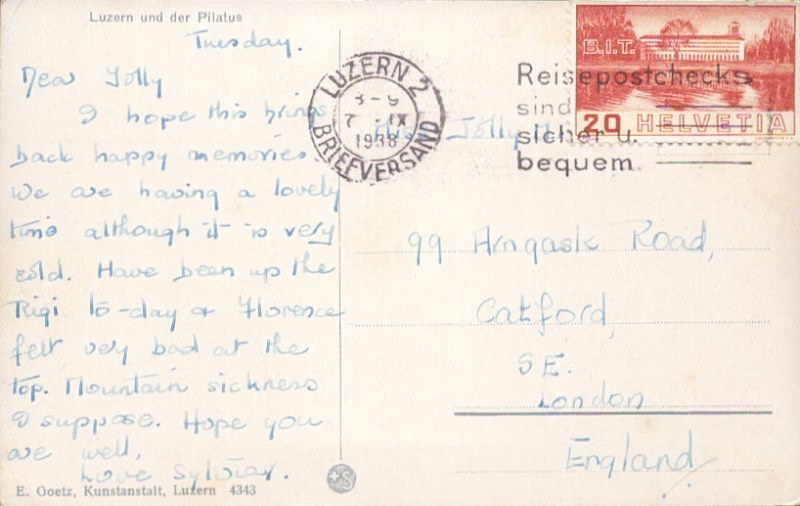 Luzern und der Pilatus
Tuesday.
Dear Jolly
I hope this brings
back happy memories
We are having a lovely
time although it is very
cold. Have been up the
Rigi to-day & Florence
felt very bad at the
top. Mountain sickness
I suppose. Hope you
are well,
Love Sylvia.
E. Goetz, Kunstanstalt, Luzern 4343
LUZERN 2
7 IX
1938
BRIEFVERSAND
Reisepostchecks
sind
sicher u.
bequem
B.I.T.
20 HELVETIA
Jolly
99 Arngask Road,
Catford,
SE.
London
England